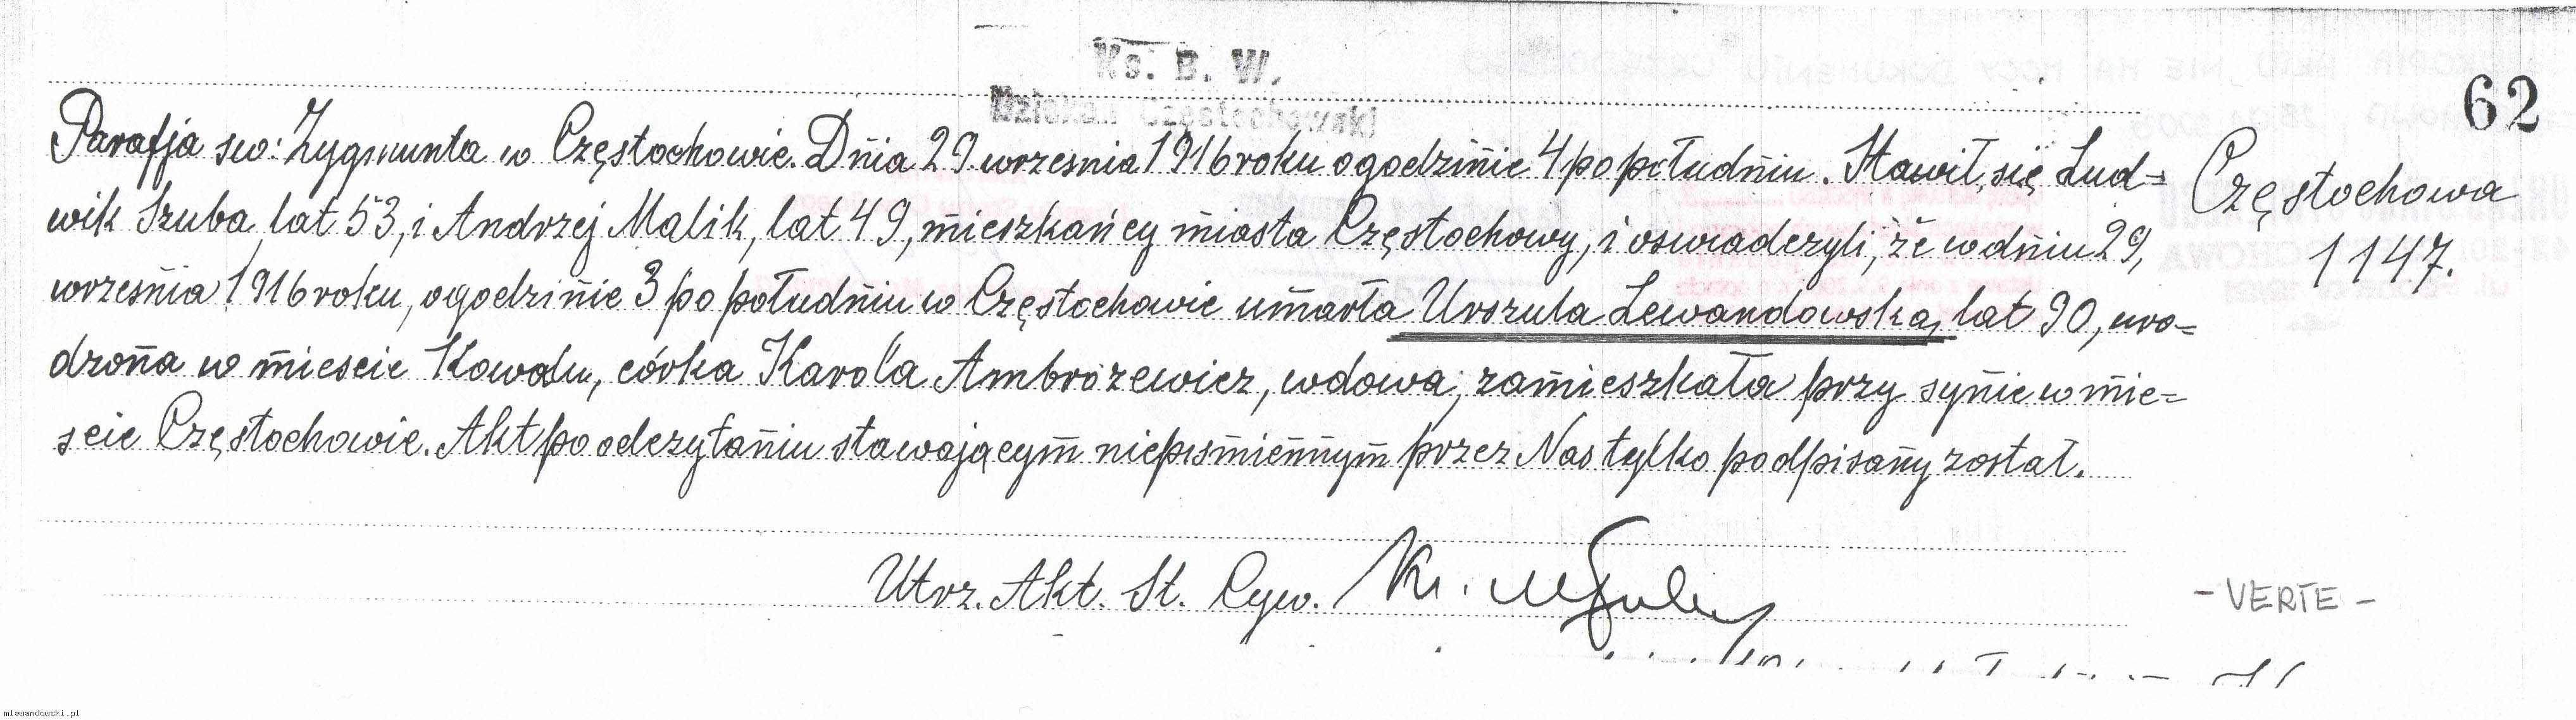 Ks. B. W.
Dziekan Częstochowski
62
Parafja św: Zygmunta w Częstochowie. Dnia 29 wrzesnia 1916 roku o godzinie 4 po południu. Stawił się Lud=
wik Szuba, lat 53, i Andrzej Malik, lat 49, mieszkańcy miasta Częstochowy, i oswiadczyli, że w dniu 29,
wrzesnia 1916 roku, o godzinie 3 po południu w Częstochowie umarła Urszula Lewandowska, lat 90, uro=
dzona w miescie Kowalu, córka Karola Ambrozewicz, wdowa, zamieszkała przy synie w mie=
scie Częstochowie. Akt po odczytaniu stawającym niepismiennym przez Nas tylko podpisany został.
Częstochowa
1147.
Utrz. Akt. St. Cyw.
- VERTE -
mlewandowski.pl